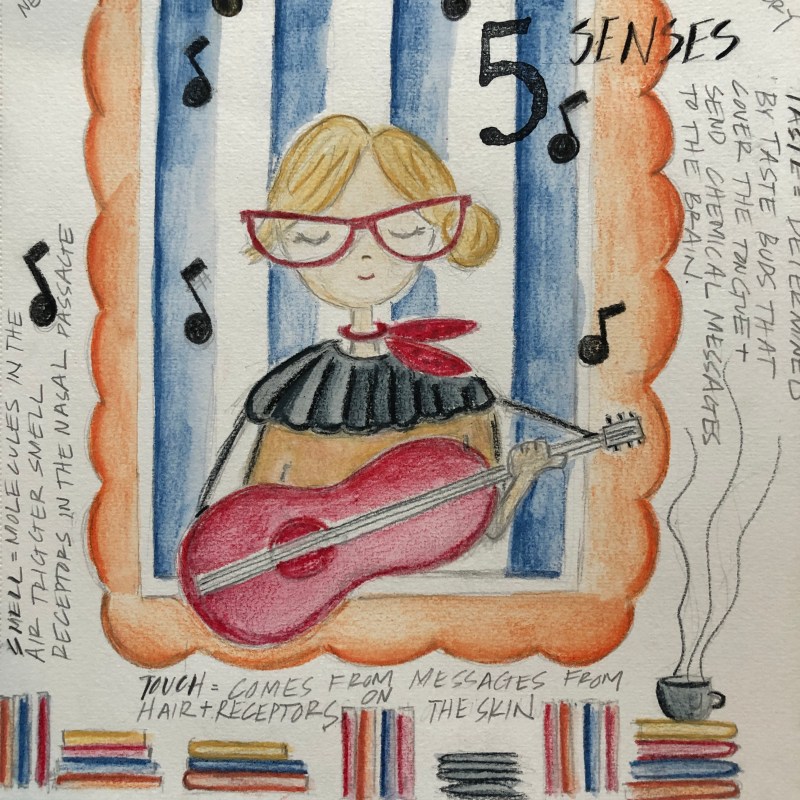 5 SENSES
TASTE = DETERMINED
"BY TASTE BUDS THAT
COVER THE TONGUE +
SEND CHEMICAL MESSAGES
TO THE BRAIN.
SMELL = MOLECULES IN THE
AIR TRIGGER SMELL
RECEPTORS IN THE NASAL PASSAGE
TOUCH = COMES FROM MESSAGES FROM
HAIR + RECEPTORS ON THE SKIN